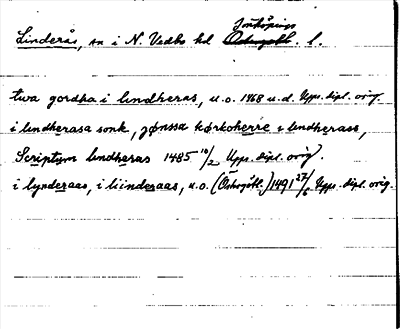 Jönköpings
Linderås, sn i N. Vedbo hd Östergötl. l.
twa gordha i lindheras, u.o. 1468 u.d. Upps. dipl. orig.
i lindherasa sonk, jønssa kørkoherre i lindherass,
Scriptum lindheras 1485 10/2 Upps. dipl. orig.
i lynderaas, i liinderaas, u.o. (Östergötl.) 1491 27/6 Upps. dipl. orig.